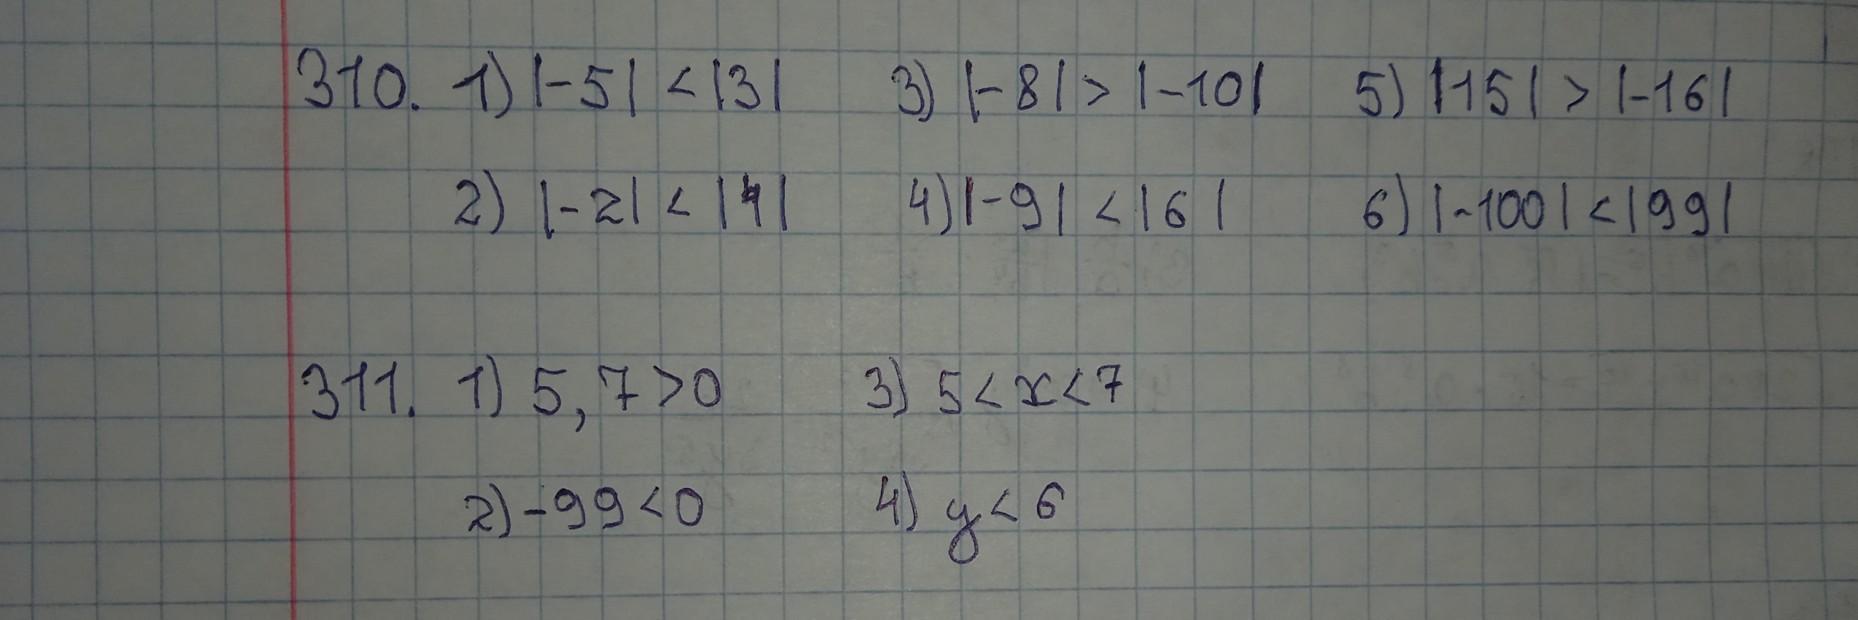 310. 1) |-5| < |3| 3) |-8| > |-10| 5) |15| > |-16|
2) |-2| < |4| 4) |-9| < |6| 6) |-100| < |99|
311. 1) 5,7>0 3) 5<x<7
2) -99<0 4) y<6